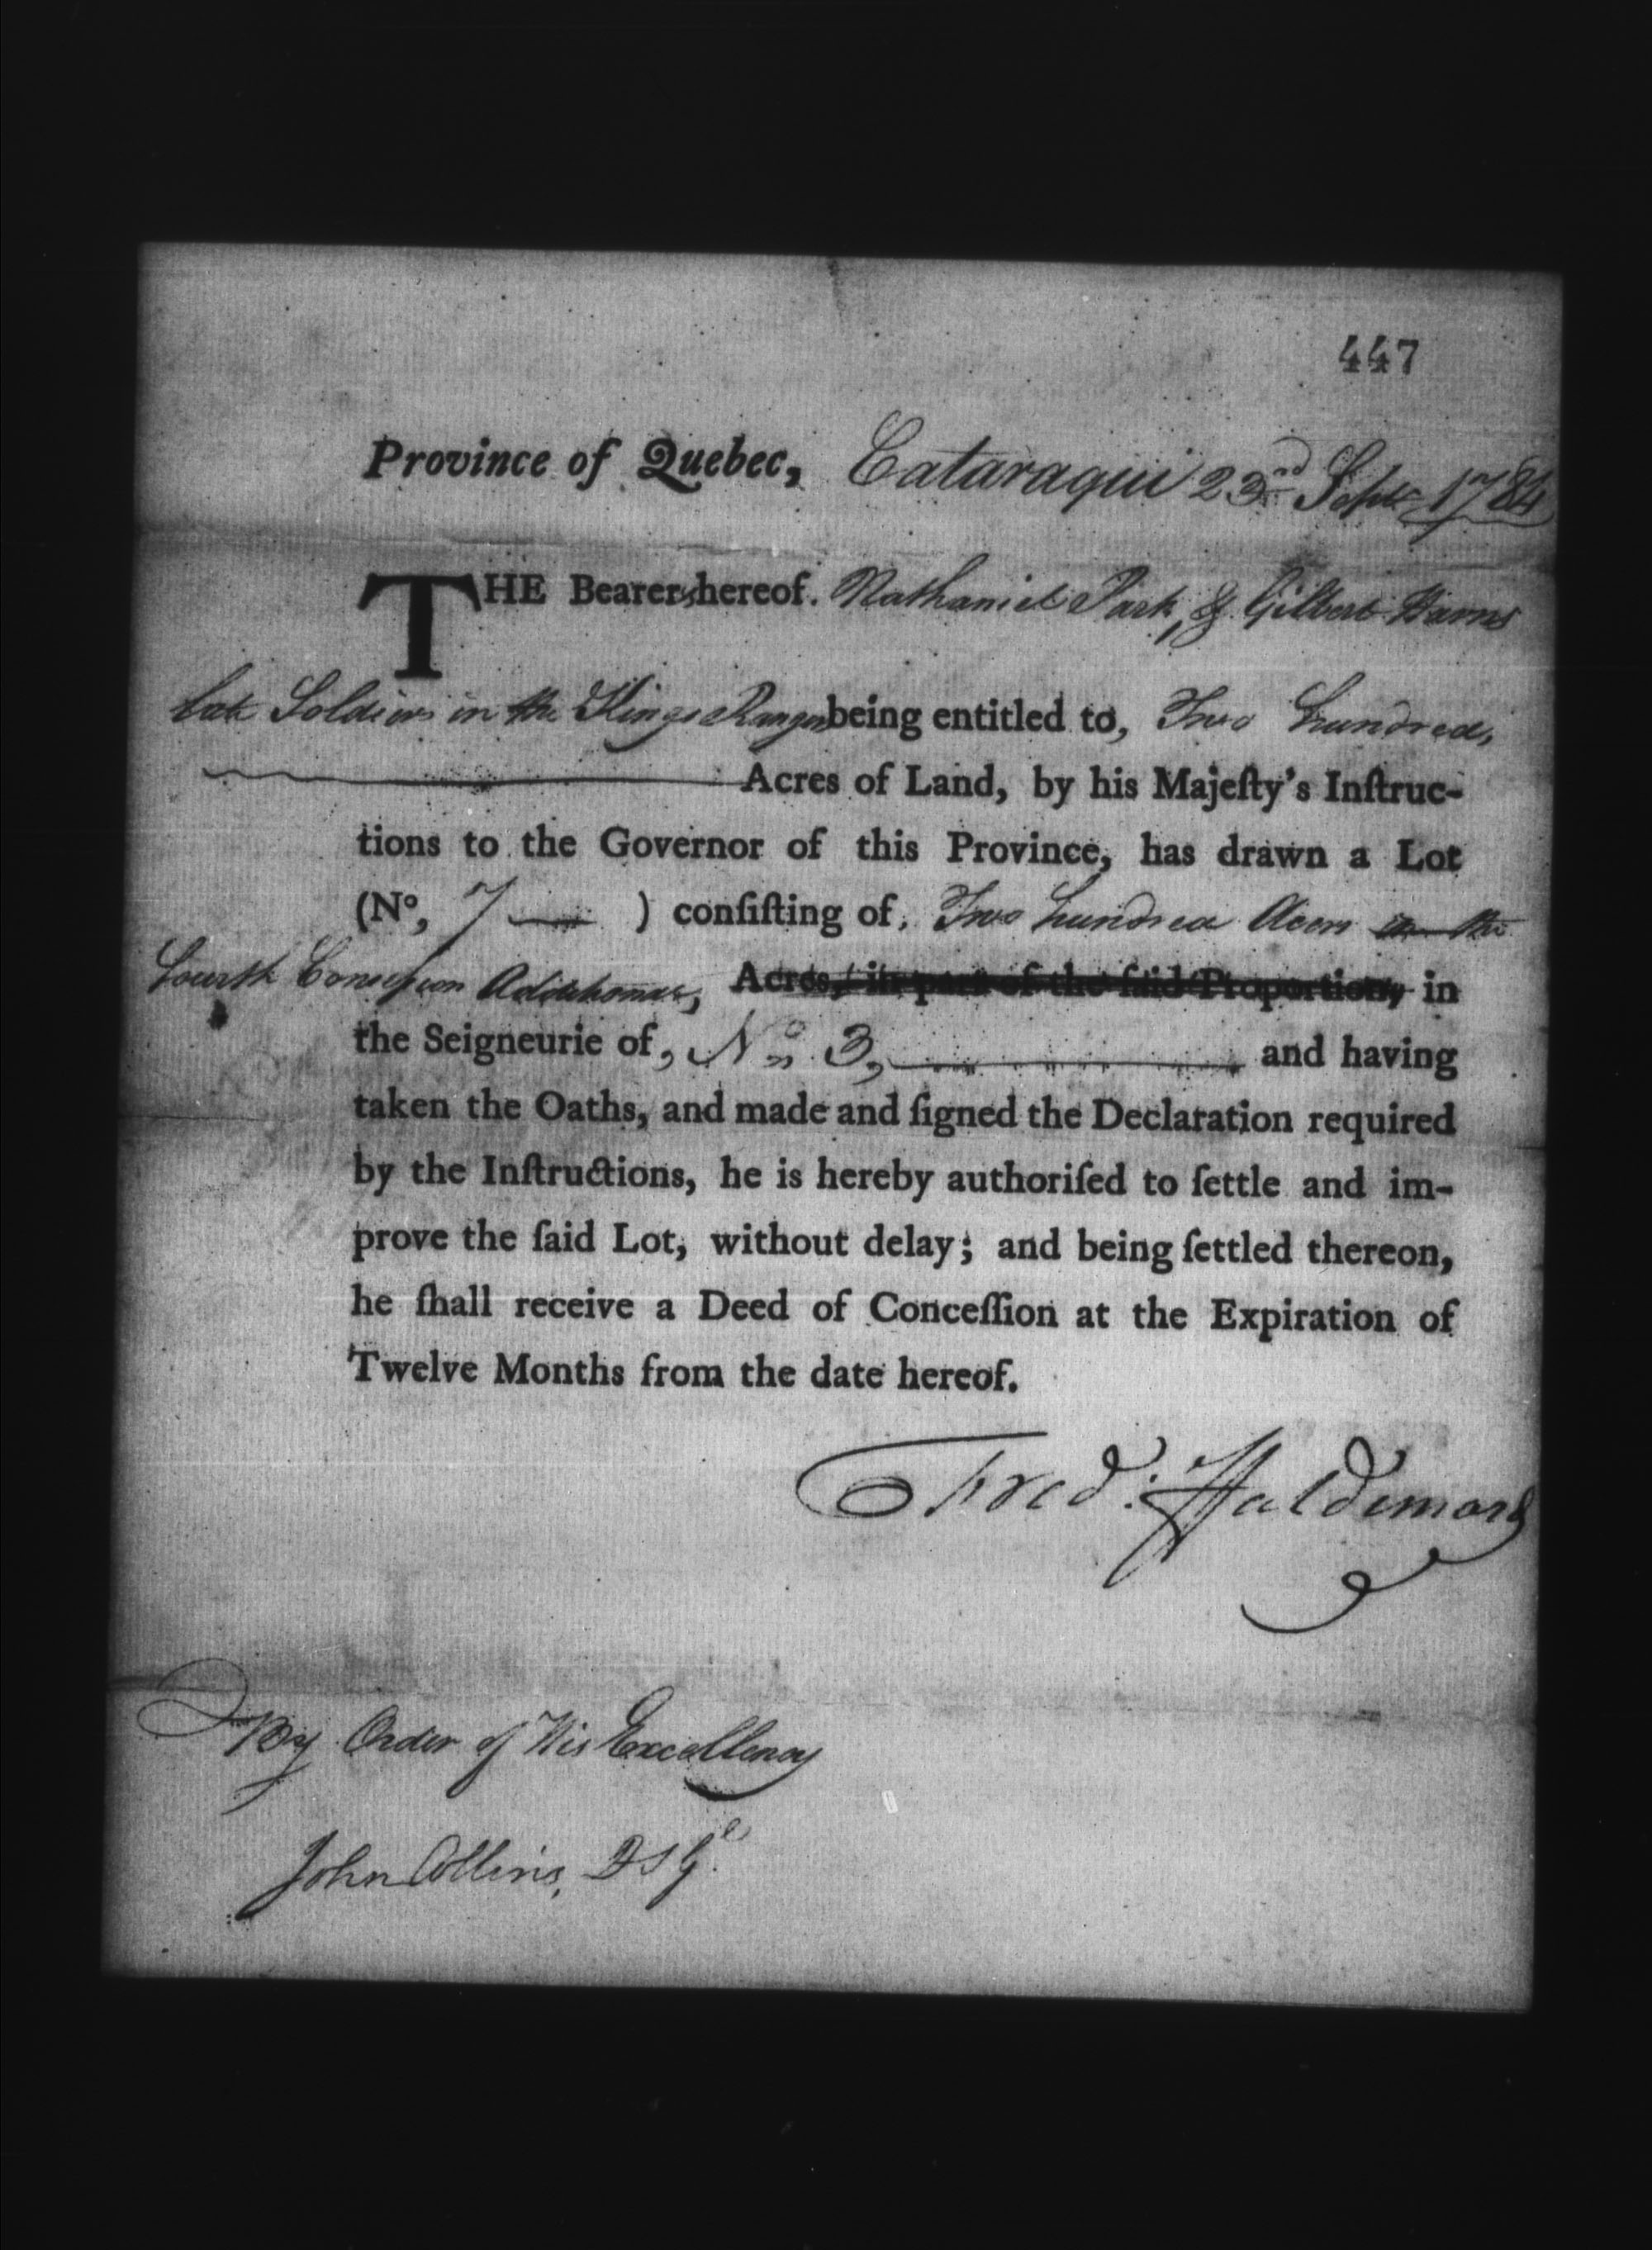 447
Province of Quebec, Cataraqui 23rd Septr 1784
THE Bearers hereof. Nathaniel Park, & Gilbert Harris
late Soldiers in the Kings Rangers being entitled to, Two hundred,
Acres of Land, by his Majeſty's Inſtruc-
tions to the Governor of this Province, has drawn a Lot
(No, 7 ) conſiſting of, Two hundred Acers in the
fourth Concession Additional, Acres, in part of the ſaid Proportion, in
the Seigneurie of, No. 3, and having
taken the Oaths, and made and ſigned the Declaration required
by the Inſtructions, he is hereby authoriſed to ſettle and im-
prove the ſaid Lot, without delay; and being ſettled thereon,
he ſhall receive a Deed of Conceſſion at the Expiration of
Twelve Months from the date hereof.
Fred: Haldimand
By Order of His Excellency
John Collins, D S Gl